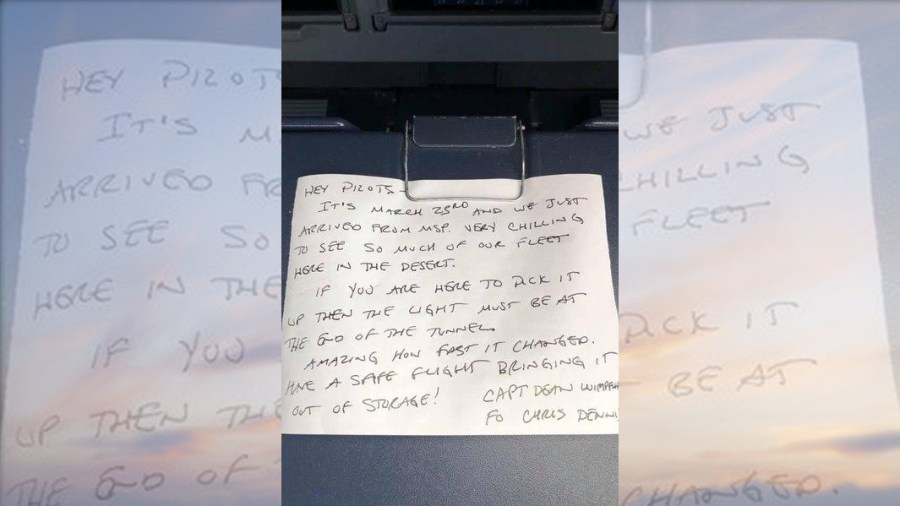 HEY PILOTS-
IT'S MARCH 23RD AND WE JUST
ARRIVED FROM MSP. VERY CHILLING
TO SEE SO MUCH OF OUR FLEET
HERE IN THE DESERT.
IF YOU ARE HERE TO PICK IT
UP THEN THE LIGHT MUST BE AT
THE END OF THE TUNNEL.
AMAZING HOW FAST IT CHANGED.
HAVE A SAFE FLIGHT BRINGING IT
OUT OF STORAGE! CAPT DEAN
FO CHRIS